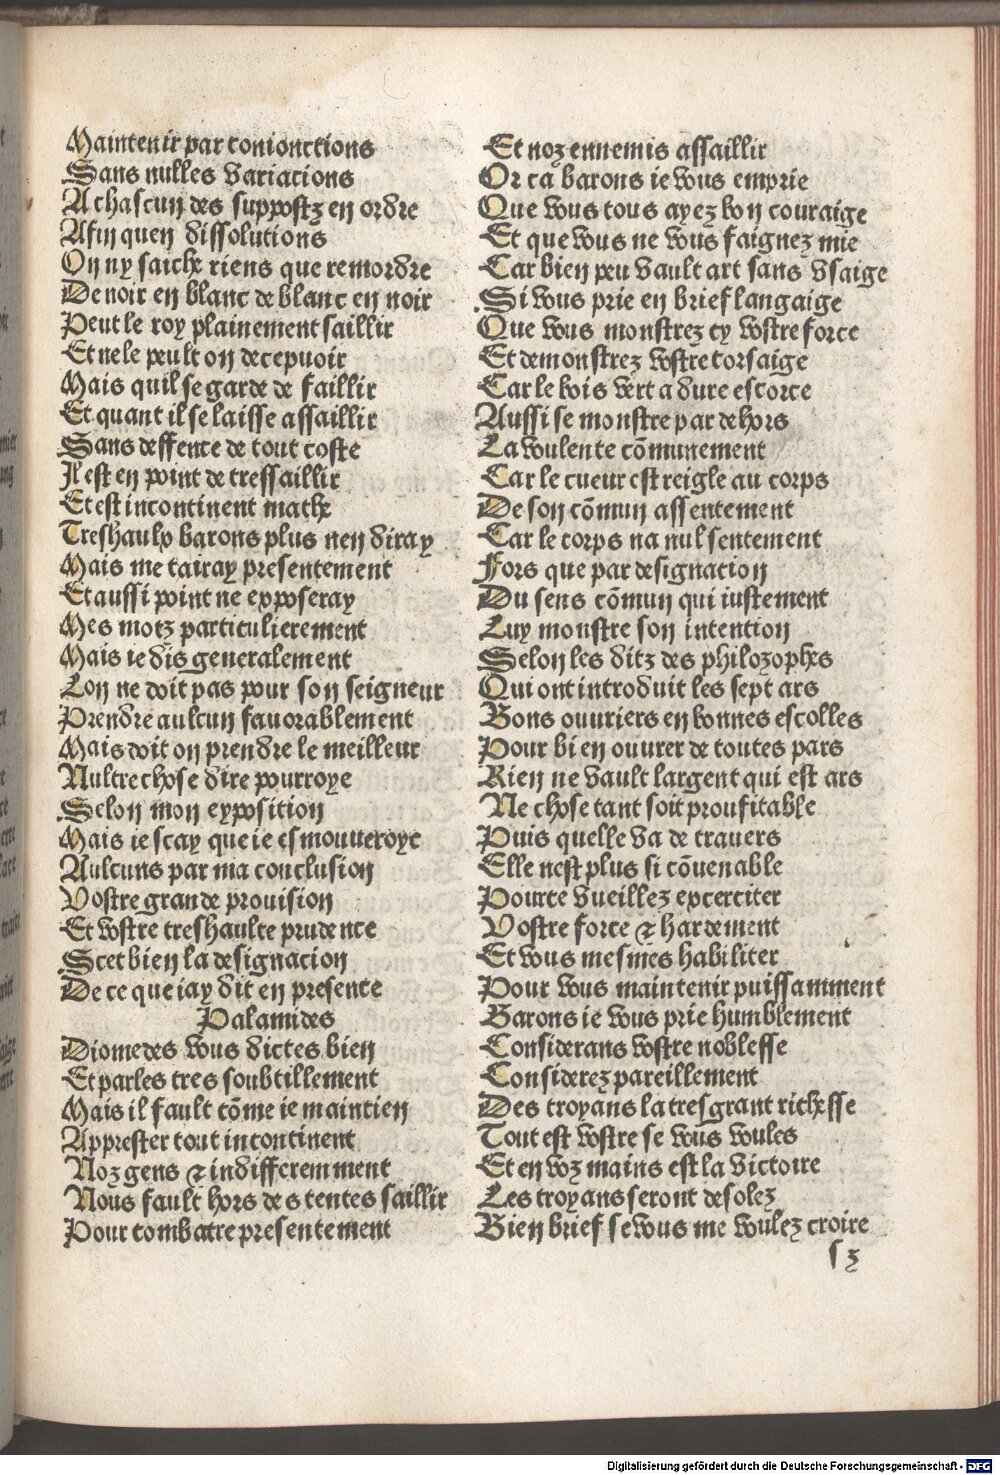 Maintenir par conionctions
Sans nulles variacions
A chascun des suppostz en ordre
Afin quen dissolutions
On ny saiche riens que remordre
De noir en blanc de blanc en noir
Peut le roy plainement saillir
Et ne le peult on decepuoir
Mais quil se garde de faillir
Et quant il se laisse assaillir
Sans deffence de tout coste
Il est en point de tressaillir
Et est incontinent mathe
Treshaulx barons plus nen diray
Mais me tairay presentement
Et aussi point ne exposeray
Mes motz particulierement
Mais ie dis generalement
Lon ne doit pas pour son seigneur
Prendre aulcun fauorablement
Mais doit on prendre le meilleur
Aultre chose dire pourroye
Selon mon exposition
Mais ie scay que ie esmouueroye
Aulcuns par ma conclusion
Vostre grande prouision
Et vostre treshaulte prudence
Scet bien la designacion
De ce que iay dit en presente
Palamides
Diomedes vous dictes bien
Et parles tres soubtillement
Mais il fault cõme ie maintien
Apprester tout incontinent
Noz gens ⁊ indifferemment
Nous fault hors des tentes saillir
Pour combatre presentement
Et noz ennemis assaillir
Or ca barons ie vous emprie
Que vous tous ayez bon couraige
Et que vous ne vous faignez mie
Car bien peu vault art sans vsaige
Si vous prie en brief langaige
Que vous monstrez cy vostre force
Et demonstrez vostre corsaige
Car le bois vert a dure escorce
Aussi se monstre par dehors
La voulente cõmunement
Car le cueur est reigle au corps
De son cõmun assentement
Car le corps na nul sentement
Fors que par designacion
Du sens cõmun qui iustement
Luy monstre son intention
Selon les ditz des philozophes
Qui ont introduit les sept ars
Bons ouuriers en bonnes escolles
Pour bien ouurer de toutes pars
Rien ne vault largent qui est ars
Ne chose tant soit proufitable
Puis quelle va de trauers
Elle nest plus si cõuenable
Pource vueillez excerciter
Vostre force ⁊ hardement
Et vous mesmes habiliter
Pour vous maintenir puissamment
Barons ie vous prie humblement
Considerans vostre noblesse
Considerez pareillement
Des troyans la tresgrant richesse
Tout est vostre se vous voules
Et en voz mains est la victoire
Les troyans seront desolez
Bien brief se vous me voulez croire
s z
Digitalisierung gefördert durch die Deutsche Forschungsgemeinschaft - DFG